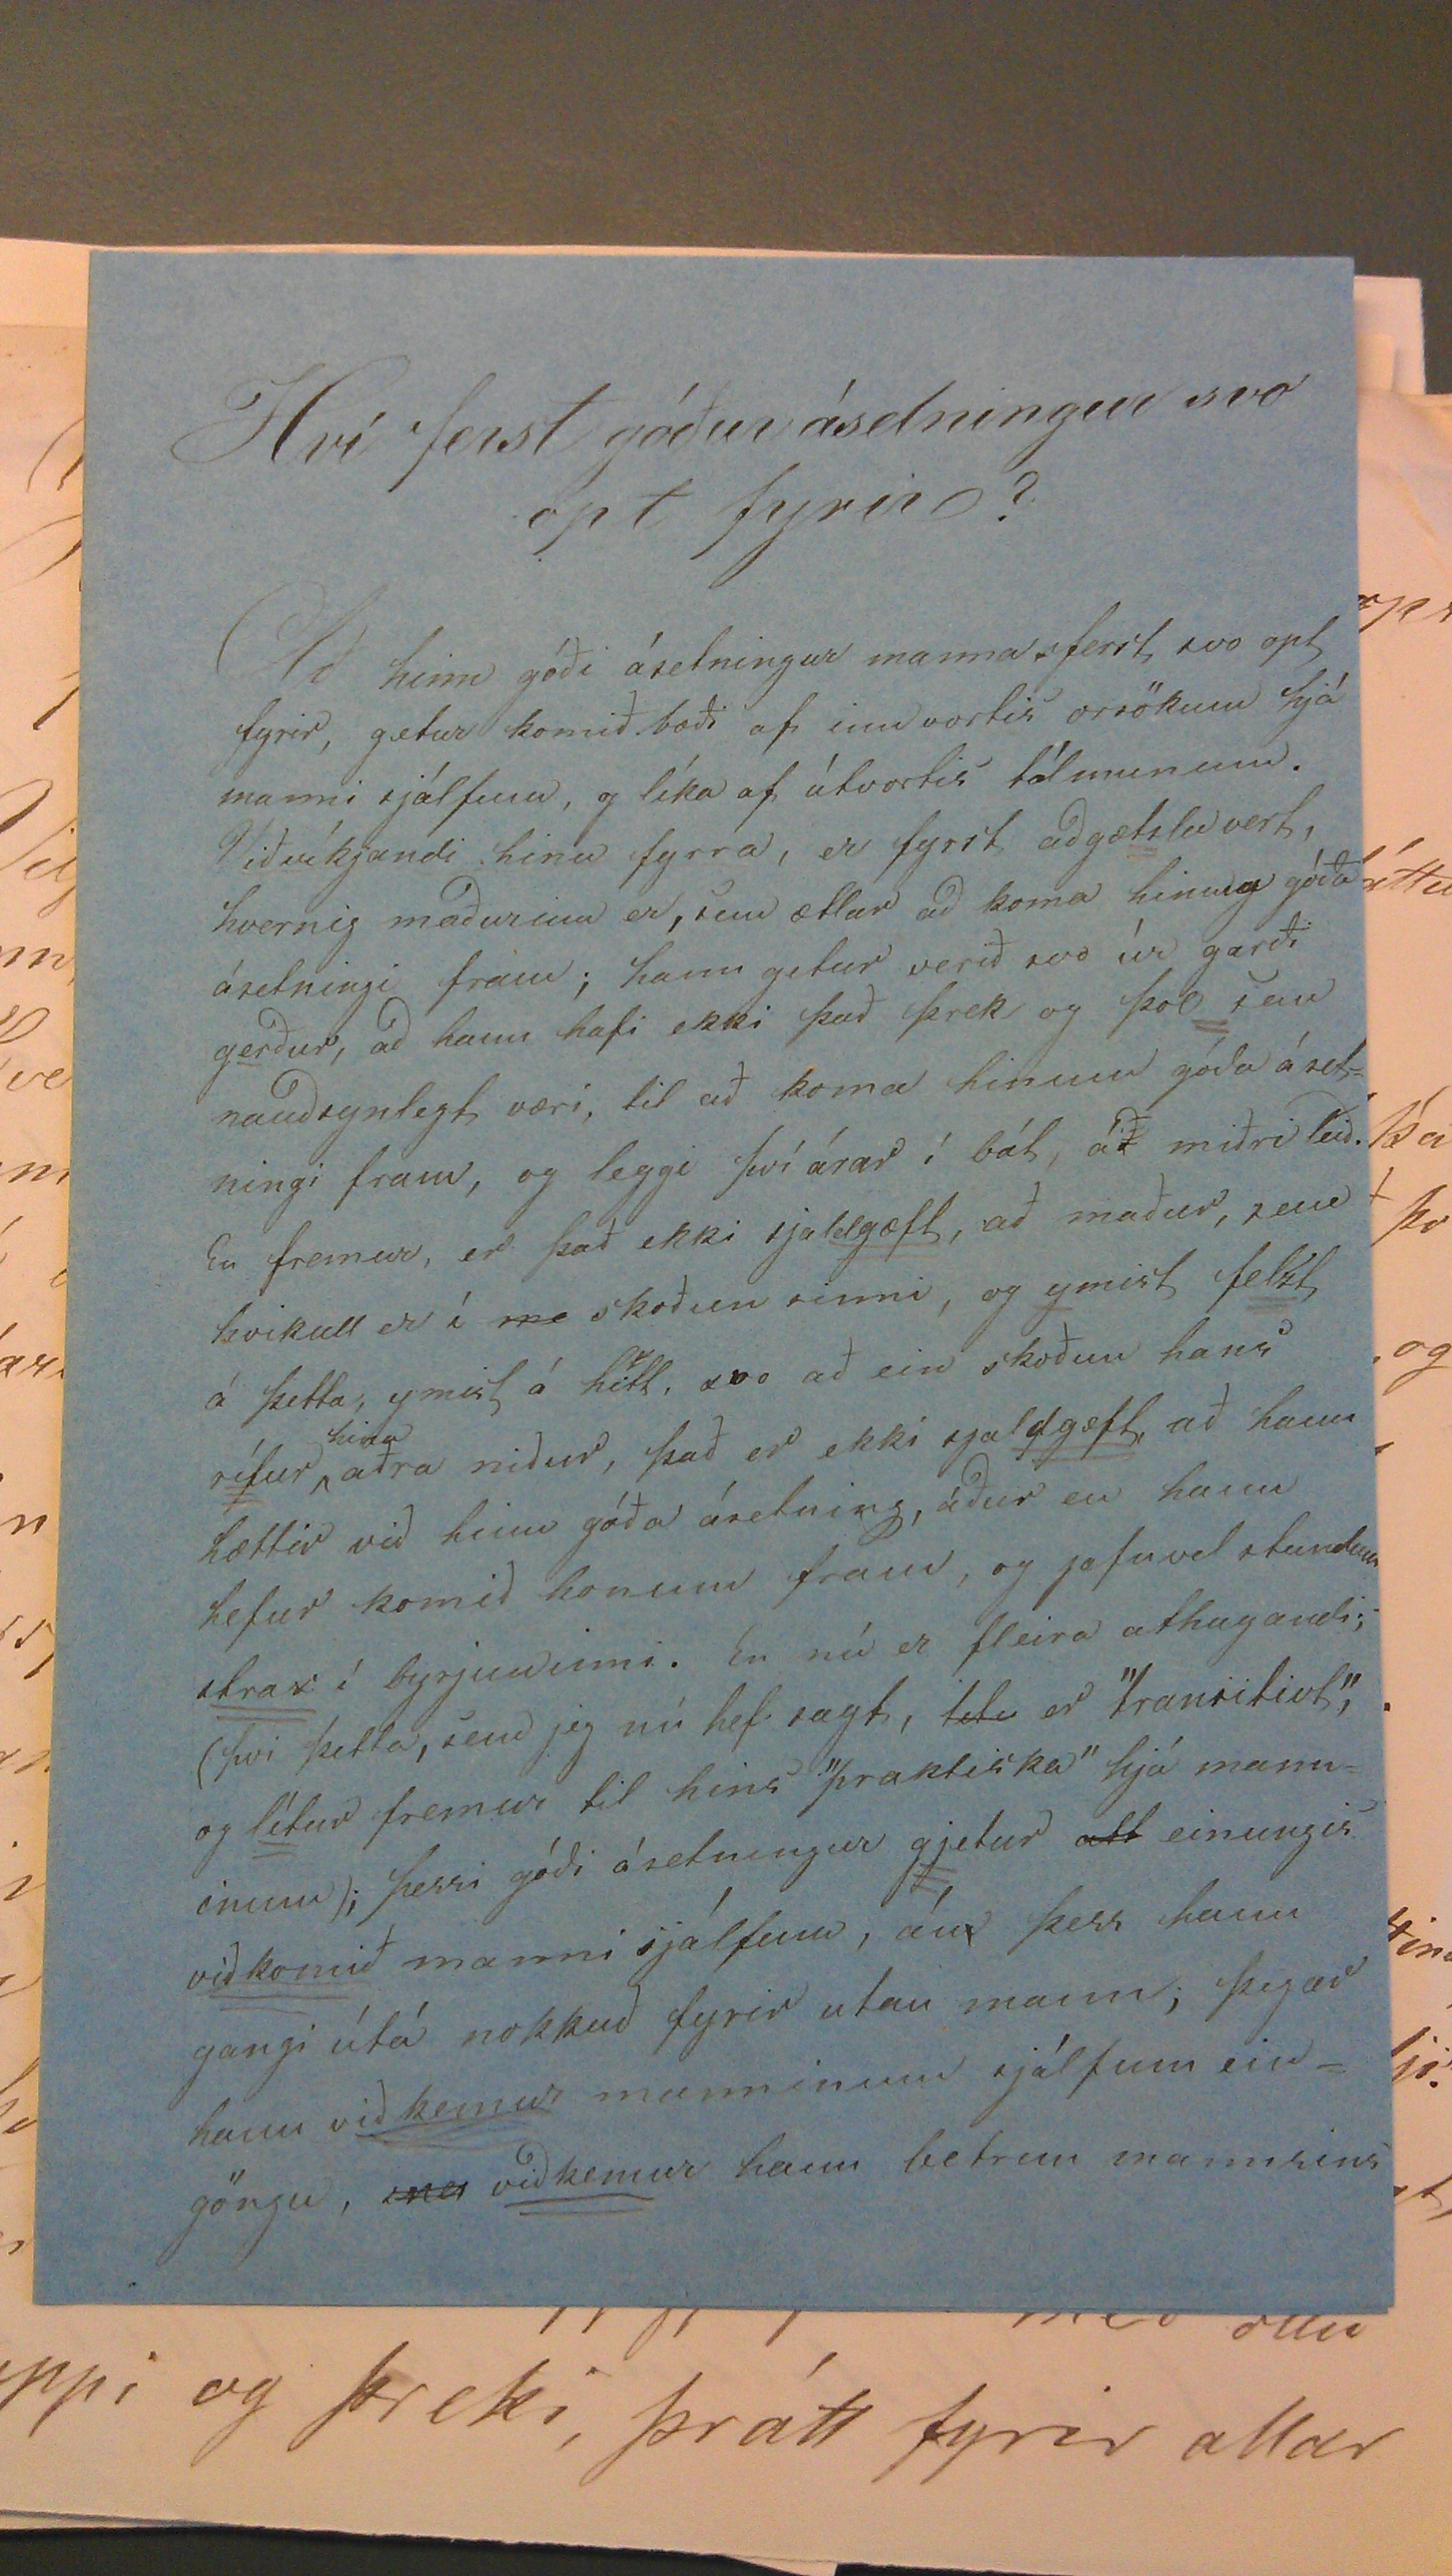 Hví ferst góður ásetningur svo
opt fyrir?
Að hinn góði ásetningur manna ferst svo opt
fyrir, getur komið bæði af innvortis orsökum hjá
manni sjálfum, og líka af útvortis tálmunum.
Viðvíkjandi hinu fyrra, er fyrst aðgætsluvert,
hvernig maðurinn er, sem ætlar að koma hinum góða
ásetningi fram; hann getur verið svo úr garði
gerður, að hann hafi ekki það þrek og þol sem
nauðsynlegt væri, til að koma hinum góða áset=
ningi fram, og leggi því árar í bát, á miðri leið.
En fremur, er það ekki sjaldgæft, að maður, sem
hvikull er í me skoðun sinni, og ymist felst
á þetta, ymist á hitt, svo að ein skoðun hans
rífur hina aðra niður, það er ekki sjaldgæft, að hann
hættir við hinn góða ásetning, áður en hann
hefur komið honum fram, og jafnvel stundum
strax í byrjuninni. En nú er fleira athugandi;
(því þetta, sem jeg nú hef sagt, er "transitivt",
og lítur fremur til hins "praktiska" hjá mann=
inum); þessi góði ásetningur gjetur att einungis
viðkomið manni sjálfum, án þess hann
gangi útá nokkuð fyrir utan mann; þegar
hann viðkemur manninum sjálfum ein=
göngu, viðkemur hann betrun mannsins
með öllu
ppi og þreki, þrátt fyrir allar